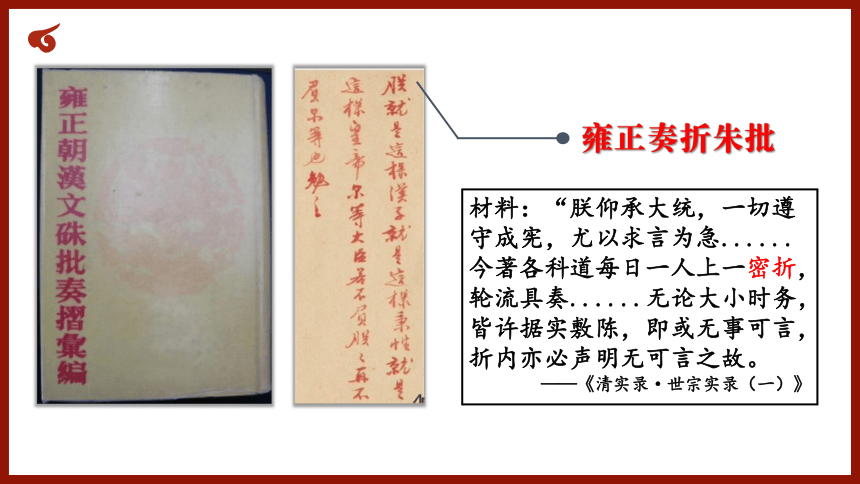 雍正朝漢文硃批奏摺彙編
朕就是這樣漢子就是這樣秉性就是
這樣皇帝尔等大臣若不負朕〻再不
負尔等也勉之
雍正奏折朱批
材料：“朕仰承大统，一切遵
守成宪，尤以求言为急......
今著各科道每日一人上一密折，
轮流具奏......无论大小时务，
皆许据实敷陈，即或无事可言，
折内亦必声明无可言之故。
——《清实录·世宗实录（一）》